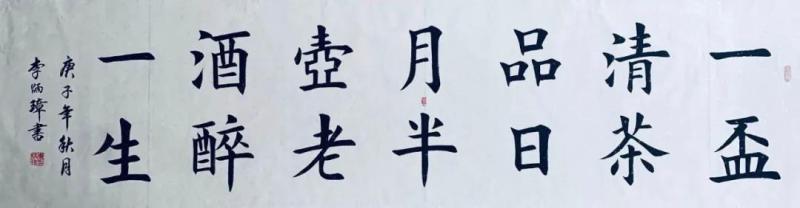 一盃
清茶
品日
月半
壺老
酒醉
一生
庚子年秋月
李炳璋書